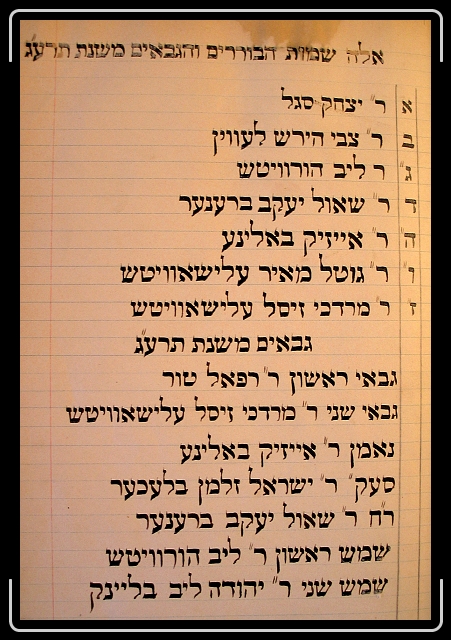 אלה שמות הבוררים והגבאים משנת תרע״ג
א ר״ יצחק סגל
ב ר״ צבי הירש לעווין
ג״ ר ליב הורוויטש
ד ר״ שאול יעקב ברענער
ה״ ר״ אייזיק באלינע
ו״ ר״ גוטל מאיר עלישאוויטש
ז ר״ מרדכי זיסל עלישאוויטש
גבאים משנת תרע״ג
גבאי ראשון ר״ רפאל טור
גבאי שני ר״ מרדכי זיסל עלישאוויטש
נאמן ר״ אייזיק באלינע
סעק״ ר״ ישראל זלמן בלעכער
ר״ח ר״ שאול יעקב ברענער
שמש ראשון ר״ ליב הורוויטש
שמש שני ר״ יהודה ליב בליינק